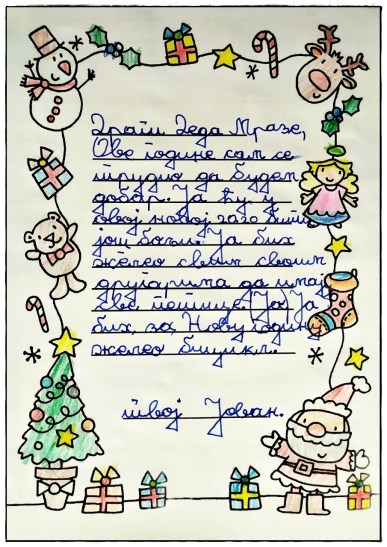 Драги Деда Мразе,
Ове године сам се
трудио да будем
добар. Ја ћу у
овој новој години бити
још бољи. Ја бих
желео свим својим
другарима да имај
све петице. Ја
бих за Нову годину
желео бицикл.
твој Јован.